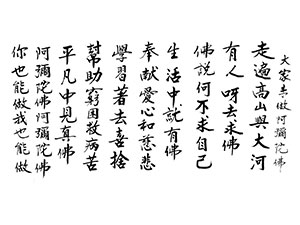 大家去做阿彌陀佛
走遍高山與大河
有人呀去求佛
佛說何不求自己
生活中就有佛
奉献愛心和慈悲
學習著去喜捨
幫助窮困救病苦
平凡中見真佛
阿彌陀佛阿彌陀佛
你也能做我也能做